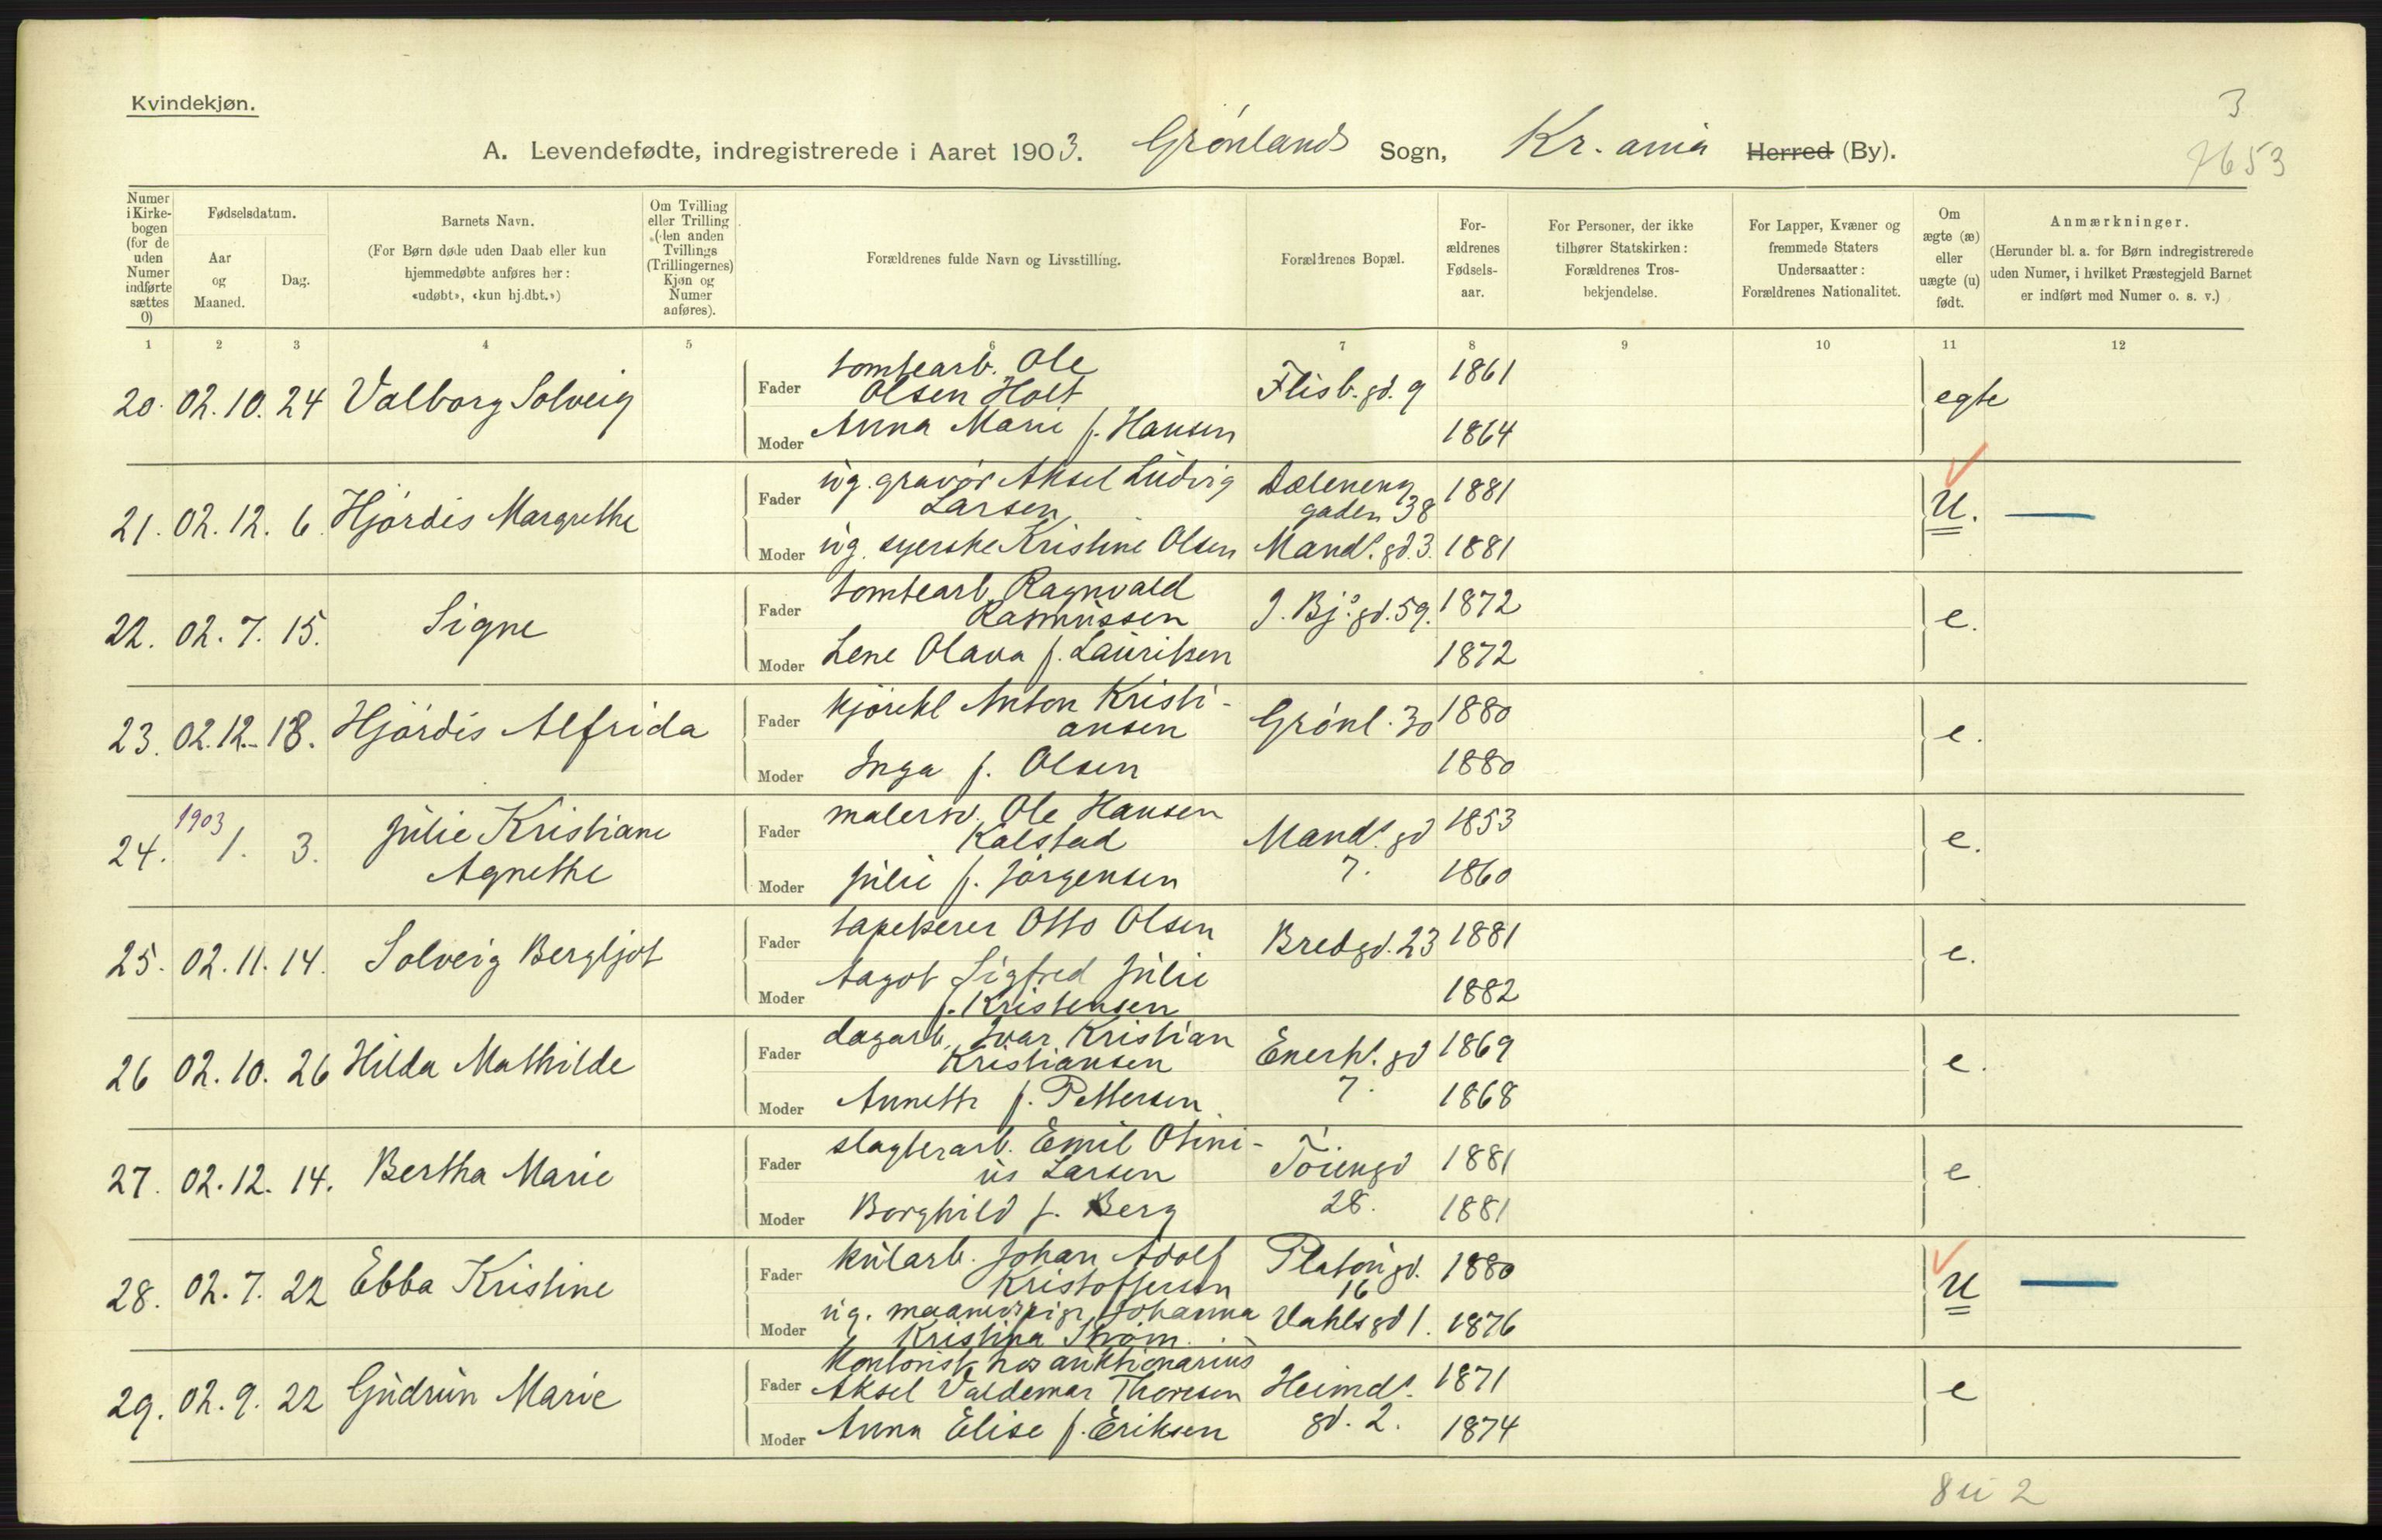 Kvindekjøn.
3
A. Levendefødte, indregistrerede i Aaret 1903. Grønlands Sogn, Kr.ania Herred (By).
7653
Numer i Kirkebogen (for de uden Numer indførte sættes 0)
Fødselsdatum.
Aar og Maaned.
Dag.
Barnets Navn.
(For Børn døde uden Daab eller kun hjemmedøbte anføres her: «udøbt», «kun hj.dbt.»)
Om Tvilling eller Trilling (den anden Tvillings (Trillingernes) Kjøn og Numer anføres).
Forældrenes fulde Navn og Livsstilling.
Forældrenes Bopæl.
Forældrenes Fødselsaar.
For Personer, der ikke tilhører Statskirken: Forældrenes Trosbekjendelse.
For Lapper, Kvæner og fremmede Staters Undersaatter: Forældrenes Nationalitet.
Om ægte (æ) eller uægte (u) født.
Anmærkninger.
(Herunder bl. a. for Børn indregistrerede uden Numer, i hvilket Præstegjeld Barnet er indført med Numer o. s. v.)
1 2 3 4 5 6 7 8 9 10 11 12
20. 02.10. 24 Valborg Solveig
Fader tomtearb. Ole Olsen Holt Flisb.gd. 9 1861 egte
Moder Anna Marie f. Hansen 1864
21. 02.12. 6. Hjördis Margrethe
Fader ug. gravör Aksel Ludvig Larsen Dæleneng gaden 38 1881 u.
Moder ug. syerske Kristine Olsen Mandl.gd.3. 1881
22. 02.7. 15. Signe
Fader tomtearb. Ragnvald Rasmussen J. Bj.s gd.59. 1872 e.
Moder Lene Olava f. Lauritsen 1872
23. 02.12. 18. Hjördis Alfrida
Fader kjörekl Anton Kristiansen Grönl. 30 1880 e.
Moder Inga f. Olsen 1880
24. 1903 1. 3. Julie Kristiane Agnethe
Fader malersv. Ole Hansen Kalstad Mandl.gd 7. 1853 e.
Moder Julie f. Jörgensen 1860
25. 02.11. 14. Solveig Bergljot
Fader tapetserer Otto Olsen Bredgd.23 1881 e.
Moder Aagot Sigfred Julie f. Kristensen 1882
26 02.10. 26 Hilda Mathilde
Fader dagarb. Ivar Kristian Kristiansen Enerh.gd 7. 1869 e.
Moder Annette f. Pettersen 1868
27. 02.12. 14. Bertha Marie
Fader slagterarb. Emil Otinius Larsen Töiengd 28. 1881 e
Moder Borghild f. Berg 1881
28. 02.7. 22 Ebba Kristine
Fader kularb. Johan Adolf Kristoffersen Platougd. 16 1880 u
Moder ug. maanedspige Johanna Kristina Ström Vahlsgd 1. 1876
29. 02.9. 22 Gudrun Marie
Fader Kontorist hos auktionarius Aksel Valdemar Thoresen Heimdl. gd. 2. 1871 e
Moder Anna Elise f. Eriksen 1874
8 u 2